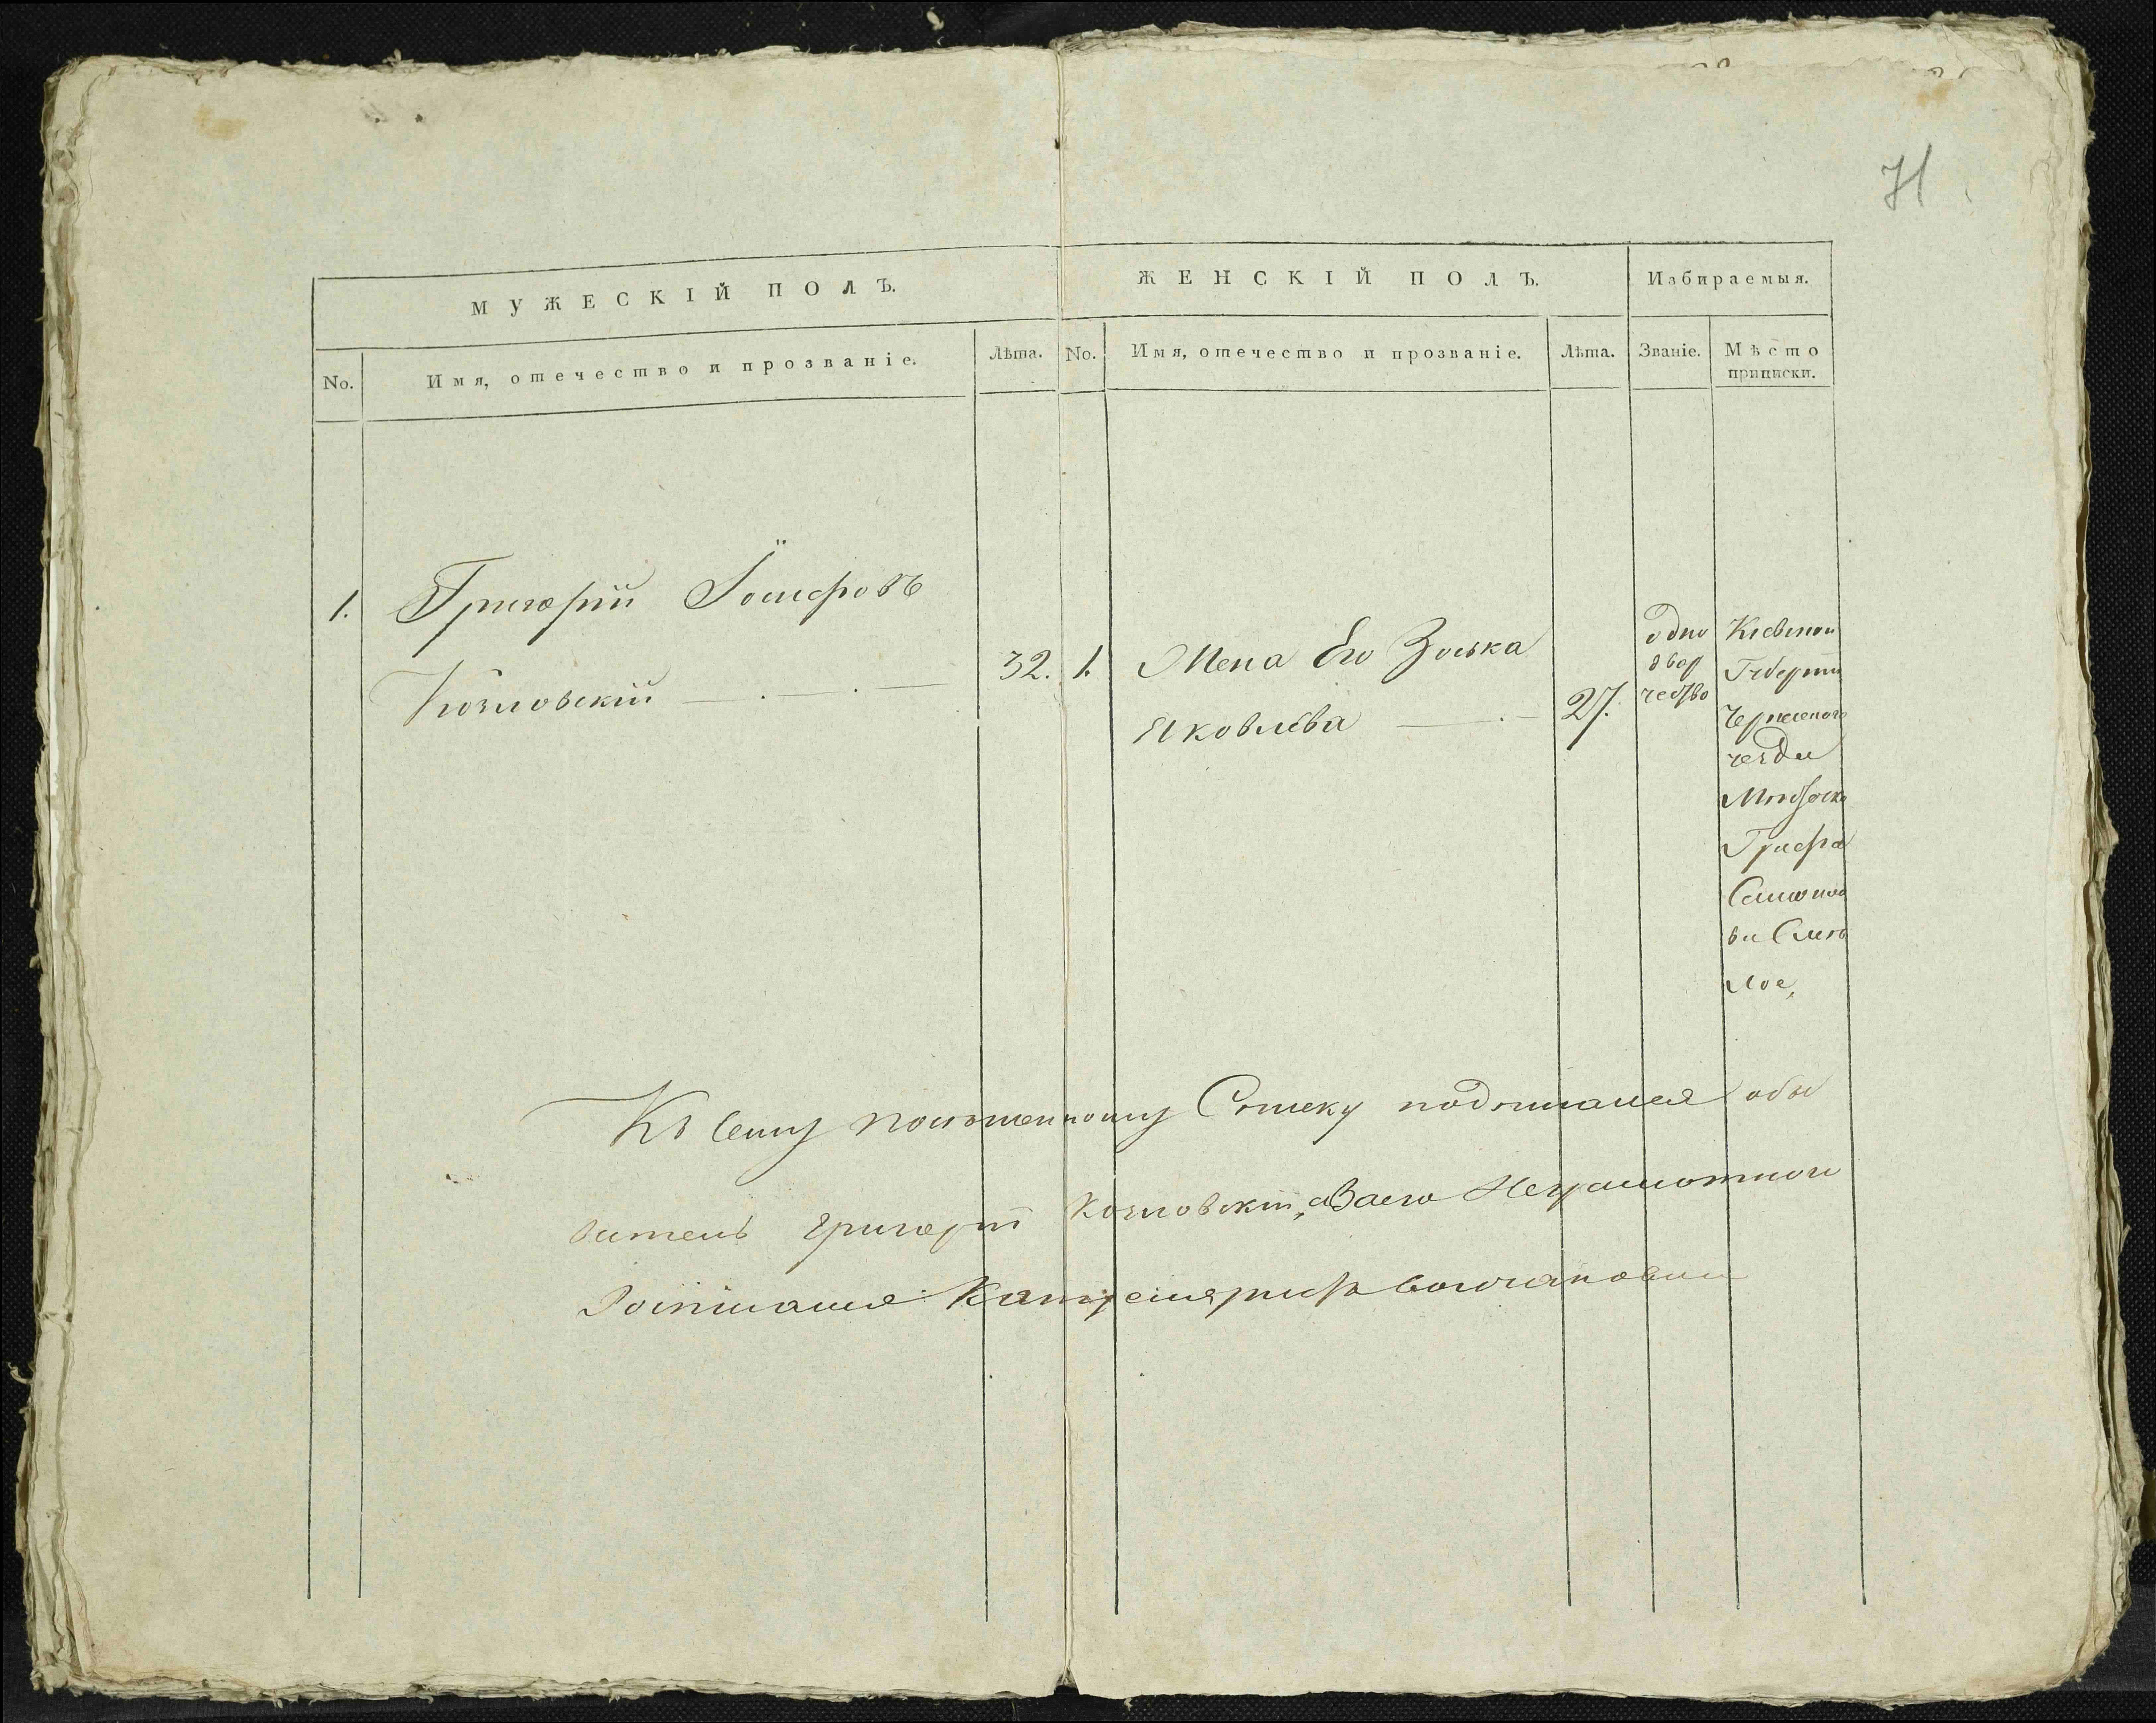 71
МУЖЕСКІЙ ПОЛЪ.
ЖЕНСКІЙ ПОЛЪ.
Избираемыя.
No.
Имя, отечество и прозваніе.
Лѣта.
No.
Имя, отечество и прозваніе.
Лѣта.
Званіе.
Мѣсто
приписки.
1.
Григорій Іосифовъ
Козловскій
32.
1.
Жена Его Зоська
Яковлева
27.
одно
двор
чество
Кіевской
Губерніи
Черкаского
уезда
Графа
Самойло
ва Смѣ
лое,
Къ сему посемейному Списку подписался обы
ватель Григорій Козловскій, а Заего Неграмотного